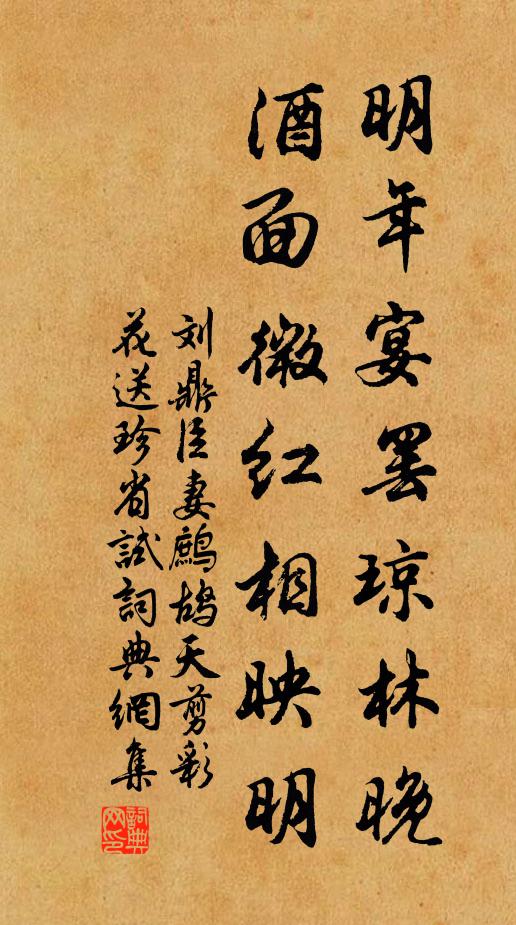 明年宴罢琼林晚
酒面微红相映明
刘鼎臣妻鹧鸪天剪彩
花送珍省試詞典網集
詞典网印